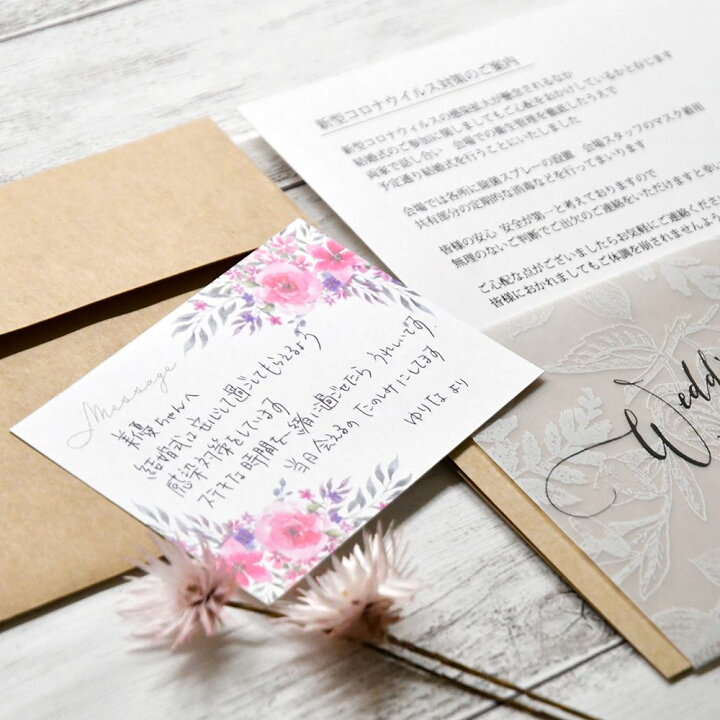 新型コロナウイルス対策のご案内
新型コロナウィルスの感染拡大が懸念されるなか
結婚式のご参加に関しましてもご心配をおかけしているかと存じます
両家で話し合い 会場での衛生管理を徹底したうえで
予定通り結婚式を行うことにいたしました
会場では各所に除菌スプレーの設置 会場スタッフのマスク着用
共有部分の定期的な消毒などを行ってまいります
皆様の安心 安全が第一と考えておりますので
無理のないご判断でご出欠のご連絡をいただけますと幸い
ご心配な点がございましたらお気軽にご連絡くださ
皆様におかれましてもご体調を崩されませんよう
Message
美優ちゃんへ
結婚式は安心して過ごしてもらえるよう
感染対策をしています
ステキな時間を一緒に過ごせたらうれしいです
当日会えるのたのしみにしてます
ゆりな より
Weddi